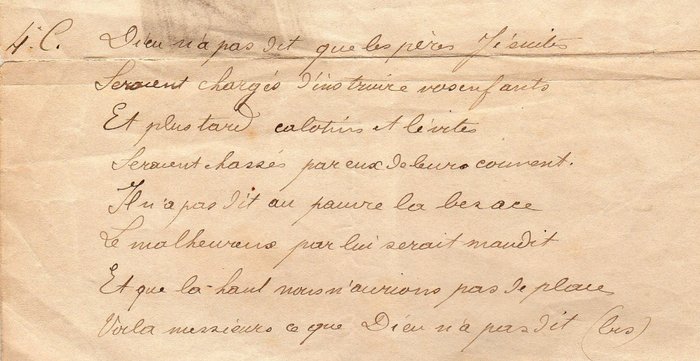 4. C. Dieu n'a pas dit que les pères Jésuites
Seraient chargés d'instruire vos enfants
Et plus tard calotins et lévites
Seraient chassés par eux de leurs couvent.
Il n'a pas dit au pauvre la besace
Le malheureux par lui serait maudit
Et que là-haut nous n'aurions pas de place
Voila messieurs ce que Dieu n'a pas dit (bis)